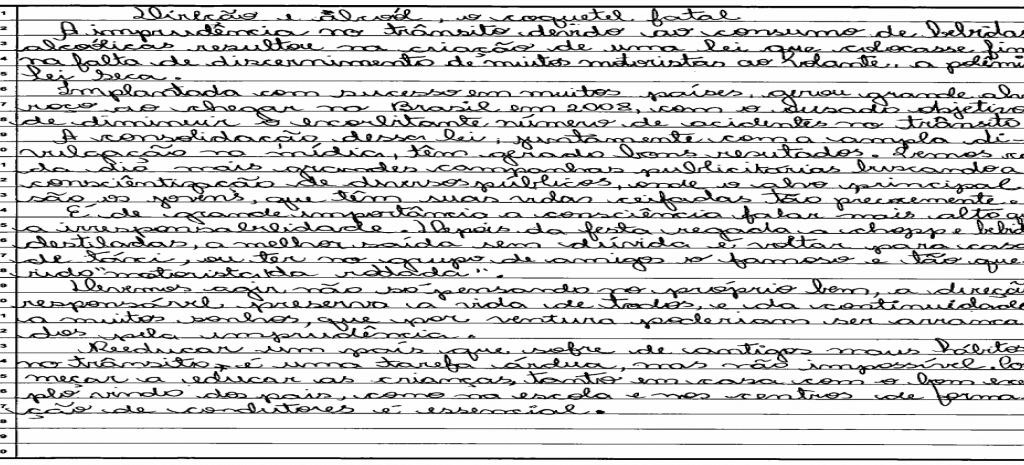 Direção e álcool, o coquetel fatal
A imprudência no trânsito devido ao consumo de bebidas
alcoólicas resultou na criação de uma lei que colocasse fim
na falta de discernimento de muitos motoristas ao volante, a polêmi
lei seca.
Implantada com sucesso em muitos países, gerou grande alvo
roço ao chegar no Brasil em 2008, com o ousado objetivo
de diminuir o exorbitante número de acidentes no trânsito
A consolidação dessa lei, juntamente com a ampla di-
vulgação na mídia, têm gerado bons resultados. Vemos ca
da dia mais grandes campanhas publicitárias buscando a
conscientização de diversos públicos, onde o alvo principal
são os jovens, que têm suas vidas ceifadas tão precocemente.
É de grande importância a consciência falar mais alto q
a irresponsabilidade. Depois da festa regada a chopp e bebid
destiladas, a melhor saída sem dúvida é voltar para casa
de táxi, ou ter no grupo de amigos o famoso e tão que
rido "motorista da rodada".
Devemos agir não só pensando no próprio bem, a direção
responsável preserva a vida de todos, e da continuidade
a muitos sonhos, que por ventura poderiam ser arranca
dos pela imprudência.
Reeducar um país que sofre de antigos maus hábitos
no trânsito, é uma tarefa árdua, mas não impossível. Co
meçar a educar as crianças, tanto em casa com o bom exe
plo vindo dos pais, como na escola e nos centros de forma
ção de condutores é essencial.